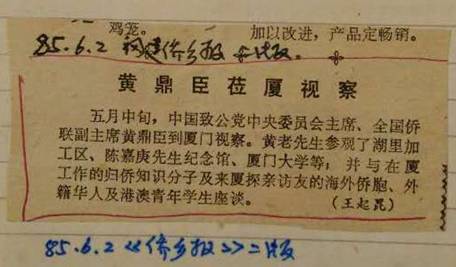 鸡笼。
加以改进，产品定畅销。
85.6.2 福建侨乡报 二版。
黄鼎臣莅厦视察
五月中旬，中国致公党中央委员会主席、全国侨
联副主席黄鼎臣到厦门视察。黄老先生参观了湖里加
工区、陈嘉庚先生纪念馆、厦门大学等；并与在厦
工作的归侨知识分子及来厦探亲访友的海外侨胞、外
籍华人及港澳青年学生座谈。
（王起昆）
85.6.2《侨乡报》二版